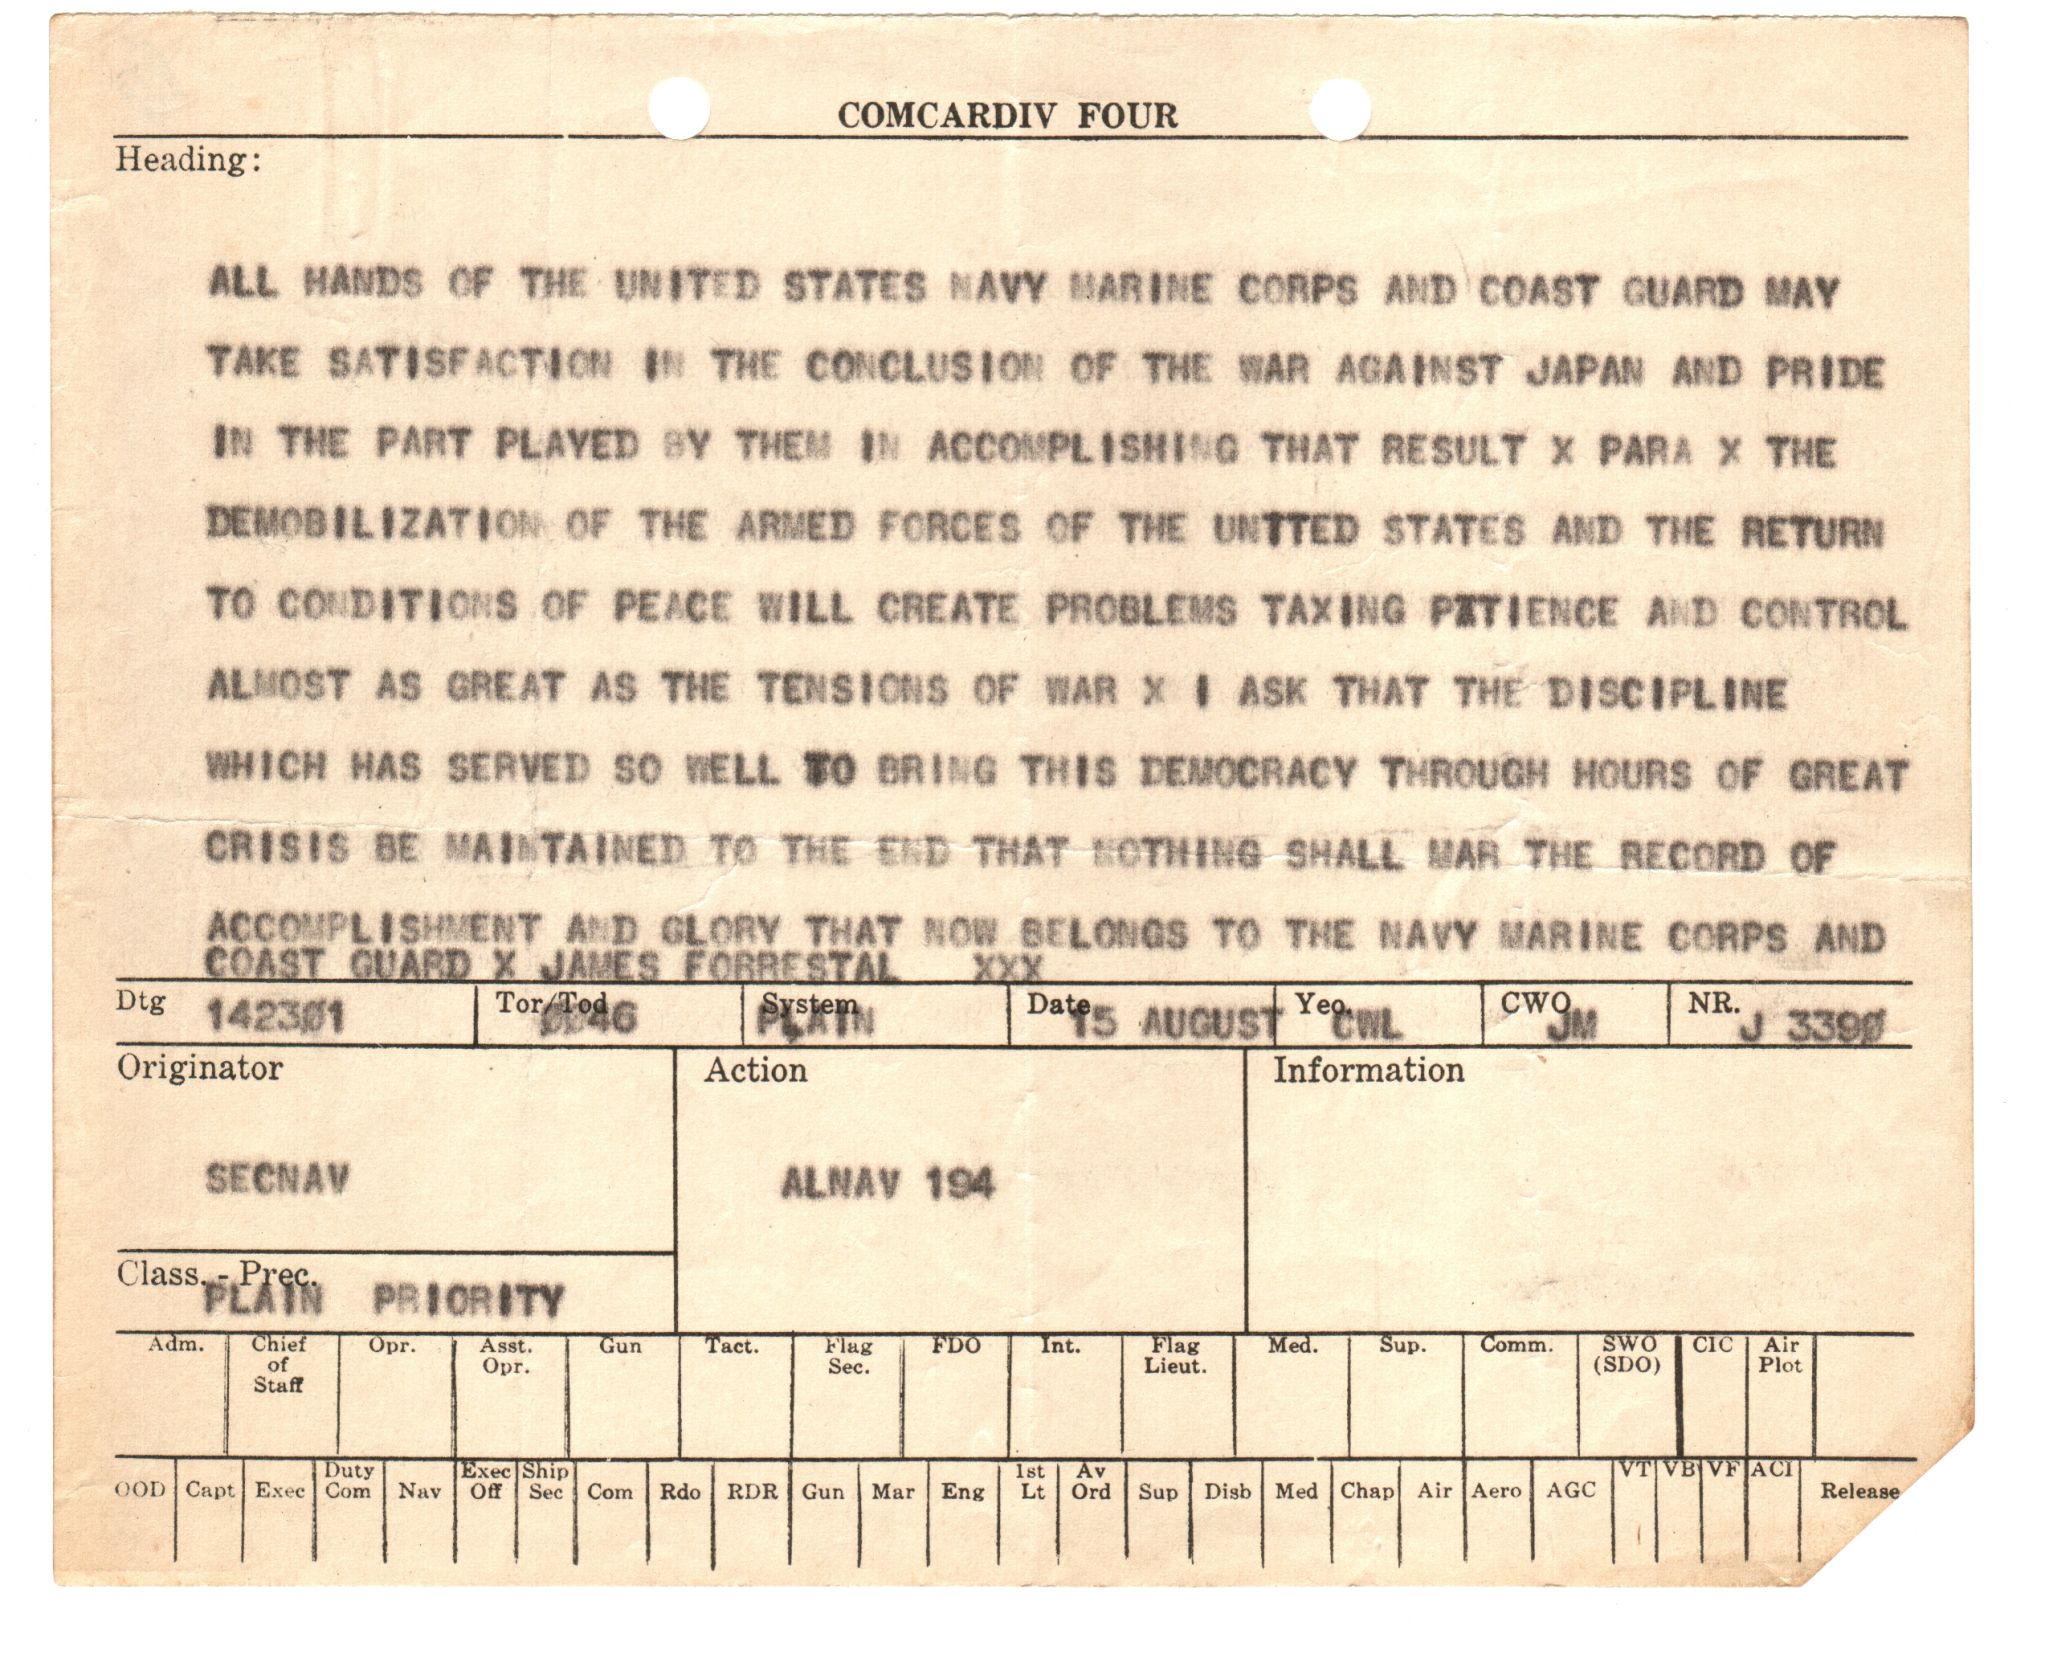 COMCARDIV FOUR
Heading:
ALL HANDS OF THE UNITED STATES NAVY MARINE CORPS AND COAST GUARD MAY
TAKE SATISFACTION IN THE CONCLUSION OF THE WAR AGAINST JAPAN AND PRIDE
IN THE PART PLAYED BY THEM IN ACCOMPLISHING THAT RESULT X PARA X THE
DEMOBILIZATION OF THE ARMED FORCES OF THE UNITED STATES AND THE RETURN
TO CONDITIONS OF PEACE WILL CREATE PROBLEMS TAXING PATIENCE AND CONTROL
ALMOST AS GREAT AS THE TENSIONS OF WAR X I ASK THAT THE DISCIPLINE
WHICH HAS SERVED SO WELL TO BRING THIS DEMOCRACY THROUGH HOURS OF GREAT
CRISIS BE MAINTAINED TO THE END THAT NOTHING SHALL MAR THE RECORD OF
ACCOMPLISHMENT AND GLORY THAT NOW BELONGS TO THE NAVY MARINE CORPS AND
COAST GUARD X JAMES FORRESTAL XXX
Dtg 1423Ø1 Tor/Tod ØØ46 System PLAIN Date 15 AUGUST Yeo. CWL CWO JM NR. J 339Ø
Originator Action Information
SECNAV ALNAV 194
Class. - Prec.
PLAIN PRIORITY
Adm. Chief of Staff Opr. Asst. Opr. Gun Tact. Flag Sec. FDO Int. Flag Lieut. Med. Sup. Comm. SWO (SDO) CIC Air Plot
OOD Capt Exec Duty Com Nav Exec Off Ship Sec Com Rdo RDR Gun Mar Eng 1st Lt Av Ord Sup Disb Med Chap Air Aero AGC VT VB VF ACI Release